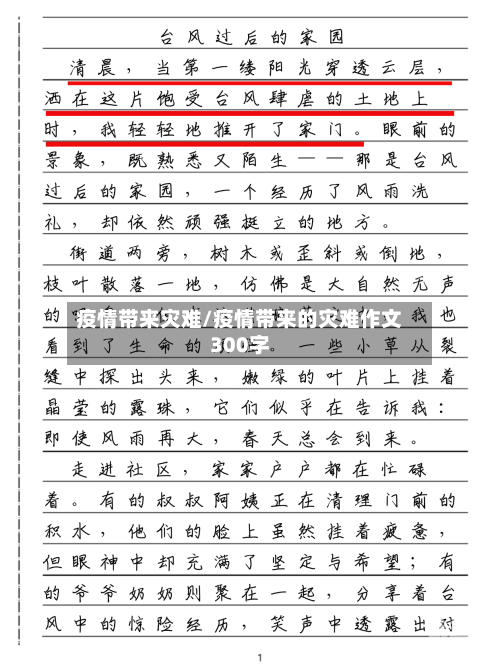 台风过后的家园
清晨，当第一缕阳光穿透云层，
洒在这片饱受台风肆虐的土地上
时，我轻轻地推开了家门。眼前的
景象，既熟悉又陌生——那是台风
过后的家园，一个经历了风雨洗
礼，却依然顽强挺立的地方。
街道两旁，树木或歪斜或倒地，
枝叶散落一地，仿佛是大自然无声
的
疫情带来灾难/疫情带来的灾难作文
300字
我也
看到了生命的
。一些小草从裂
缝中探出头来，嫩绿的叶片上挂着
晶莹的露珠，它们似乎在告诉我：
即使风雨再大，春天总会到来。
走进社区，家家户户都在忙碌
着。有的叔叔阿姨正在清理门前的
积水，他们的脸上虽然挂着疲惫，
但眼神中却充满了坚定与希望；有
的爷爷奶奶则聚在一起，分享着台
风中的惊险经历，笑声中透露出对
1